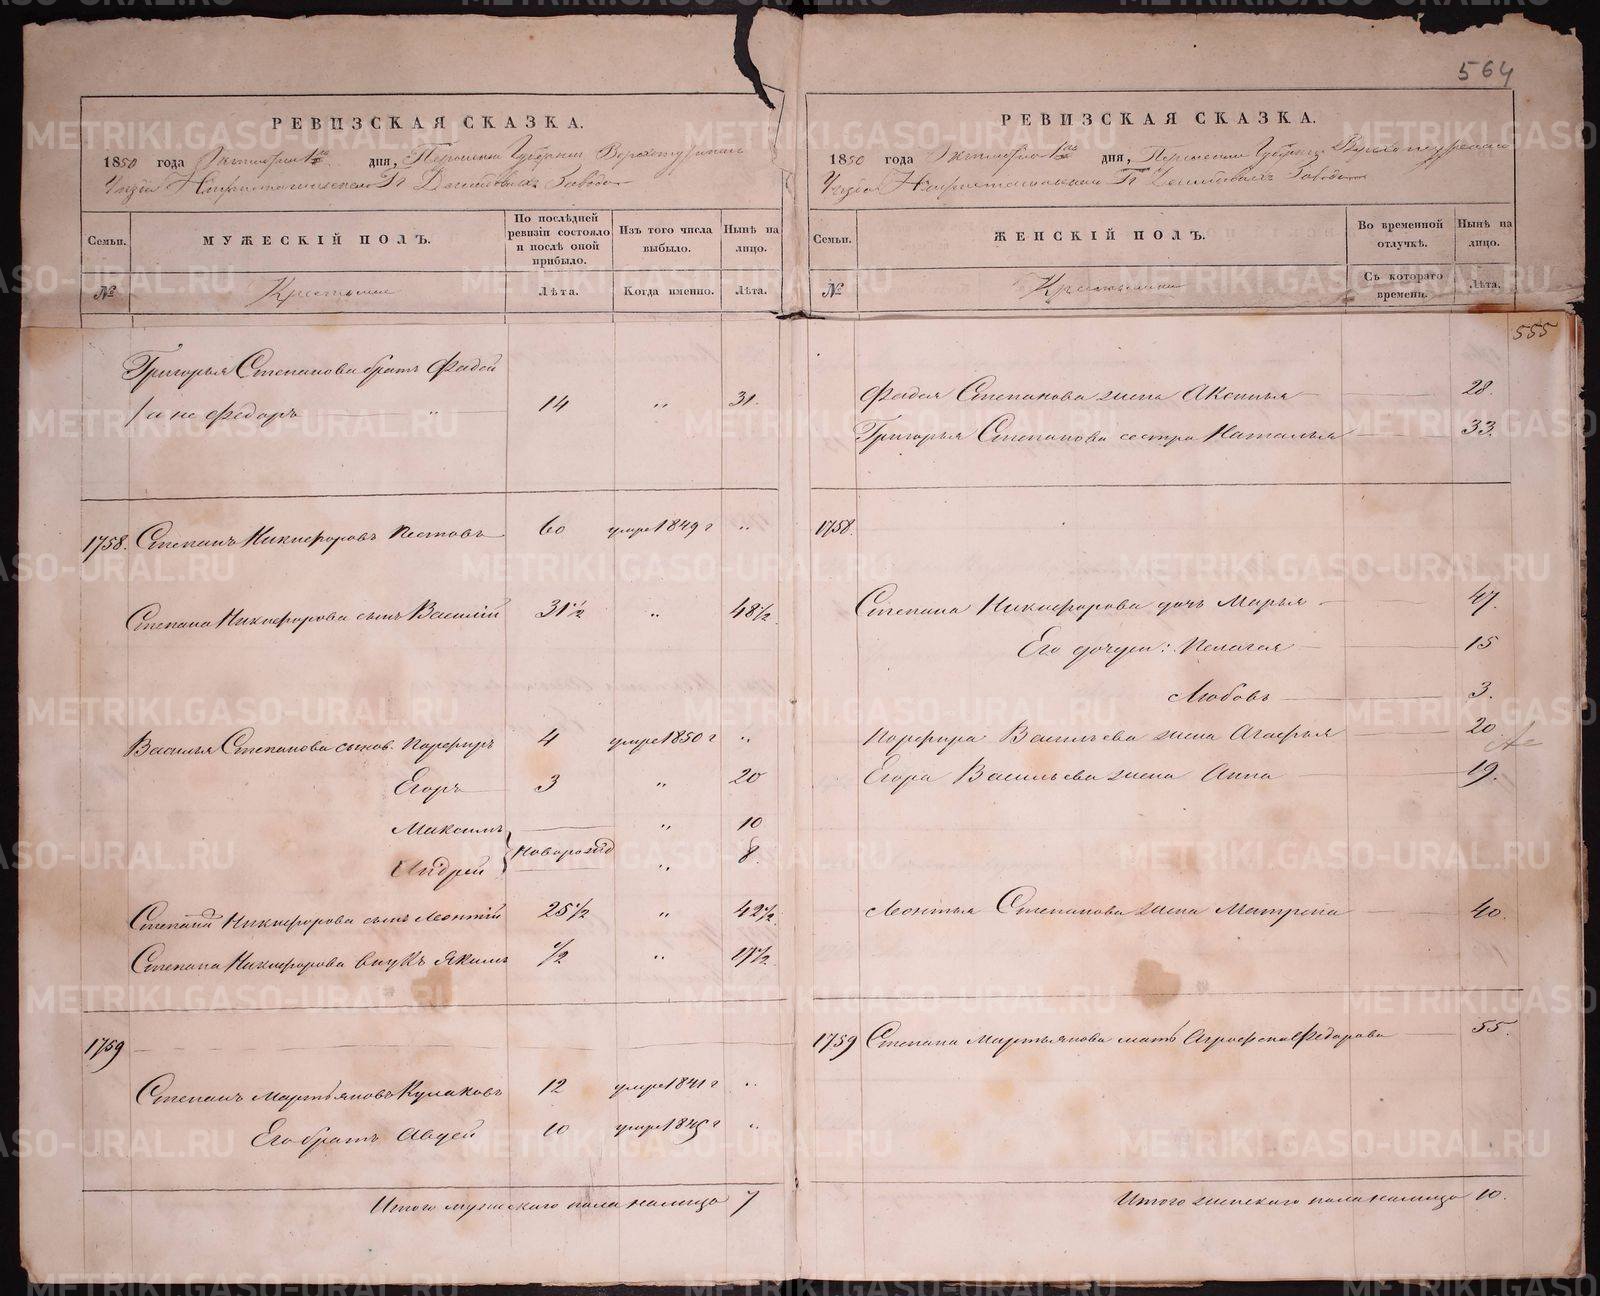 564
РЕВИЗСКАЯ СКАЗКА.
1850 года Октября 1го дня, Пермской Губернии Верхотурскаго
Уезда Нижнетагильскаго Гг Демидовыхъ Завода
Семьи. МУЖЕСКІЙ ПОЛЪ. По послѣдней ревизіи состояло и послѣ оной прибыло. Изъ того числа выбыло. Нынѣ на лицо.
№ Крестьяне Лѣта. Когда именно. Лѣта.
Григорья Степанова братъ Фадей
/а не Федоръ " 14 " 31.
1758. Степанъ Никифоровъ Пестовъ 60 умре 1849 г "
Степана Никифорова сынъ Василій 31 1/2 " 48 1/2
Василья Степанова сынов. Порфиръ 4 умре 1850 г "
Егоръ 3 " 20
Максимъ " 10
Новорожд
Андрей " 8.
Степана Никифорова сынъ Леонтій 25 1/2 " 42 1/2
Степана Никифорова внукъ Якимъ 1/2 " 17 1/2
1759
Степанъ Мартьяновъ Кулаковъ 12 умре 1841 г "
Его братъ Авдей 10 умре 1845 г "
Итого мужескаго пола налицо 7
РЕВИЗСКАЯ СКАЗКА.
1850 года Октября 1го дня, Пермской Губернии Верхотурскаго
Уезда Нижнетагильскаго Гг Демидовыхъ Завода
Семьи. ЖЕНСКІЙ ПОЛЪ. Во временной отлучкѣ. Нынѣ на лицо.
№ Крестьянки Съ котораго времени. Лѣта.
555
Фадея Степанова жена Аксинья 28.
Григорья Степанова сестра Наталья 33.
1758.
Степана Никифорова дочь Марья 47.
Его дочери: Пелагея 15
Любовь 3.
Порфира Васильева жена Агафья 20
Егора Васильева жена Анна 19.
Леонтья Степанова жена Матрена 40.
1759 Степана Мартьянова мать Агрофена Федорова 55.
Итого женскаго пола налицо 10.
METRIKI.GASO-URAL.RU